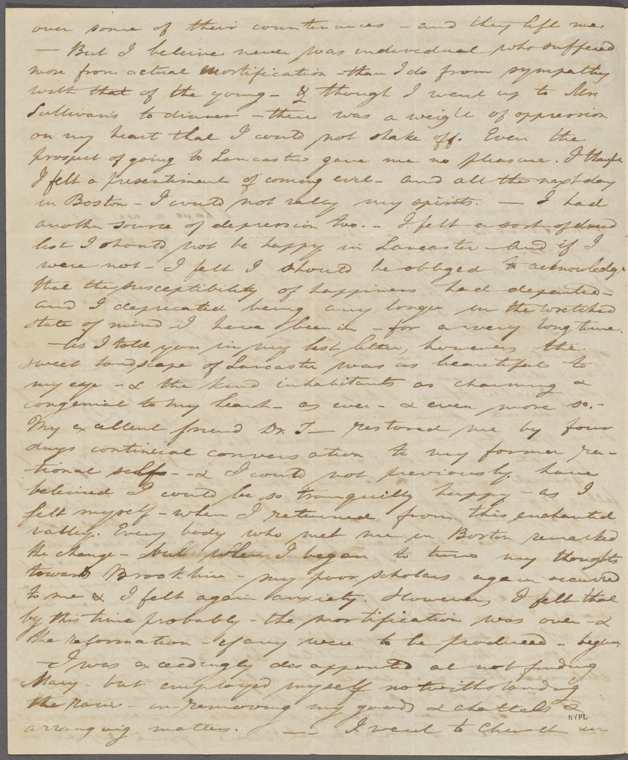 over some of their countenances – and they left me
– But I beleive never was individual who suffered
more from actual mortification than I do from sympathy
with that of the young – & though I went up to Mrs
Sullivans to dinner – there was a weight of oppression
on my heart that I could not shake off. Even the
prospect of going to Lancaster gave me no pleasure. I thought
I felt a presentiment of coming evil – and all the next day
in Boston – I could not rally my spirits. — I had
another source of depression too. – I felt a sort of dread
lest I should not be happy in Lancaster – and if I
were not – I felt I should be obliged to acknowledge
that the susceptibility of happiness had departed –
and I deprecated being any longer in the wretched
state of mind I have been in – for a very long time.
– As I told you in my last letter, however the
sweet landscape of Lancaster was as beautiful to
my eye – & the kind inhabitants as charming &
congenial to my heart – as ever – & even more so. –
My excellent friend Dr. T— restored me by four
days continual conversation to my former ra-
tional self – & I could not previously have
beleived I could be so tranquilly happy – as I
felt myself – when I returned from this enchanted
valley. Every body who met me in Boston remarked
the change – but when I began to turn my thoughts
toward Brookline – my poor scholars again occurred
to me & I felt again anxiety. However, I felt that
by this time probably – the mortification was over – &
the reformation – if any were to be produced – begun
– I was exceedingly disappointed at not finding
Mary – but employed myself notwithstanding
the rain – in removing my goods & chattels &
arranging matters. —— I went to Church in
NYPL